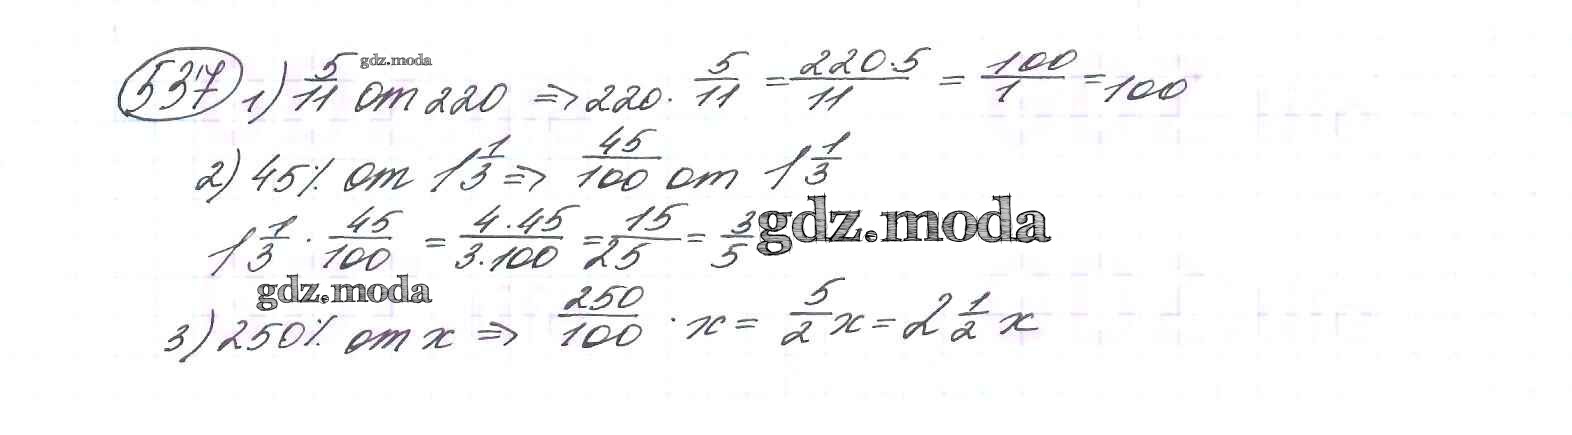 537 1) 5/11 от 220 ⇒ 220 · 5/11 = 220·5/11 = 100/1 = 100
gdz.moda
2) 45% от 1 1/3 ⇒ 45/100 от 1 1/3
1 1/3 · 45/100 = 4·45/3·100 = 15/25 = 3/5
gdz.moda
gdz.moda
3) 250% от x ⇒ 250/100 · x = 5/2 x = 2 1/2 x